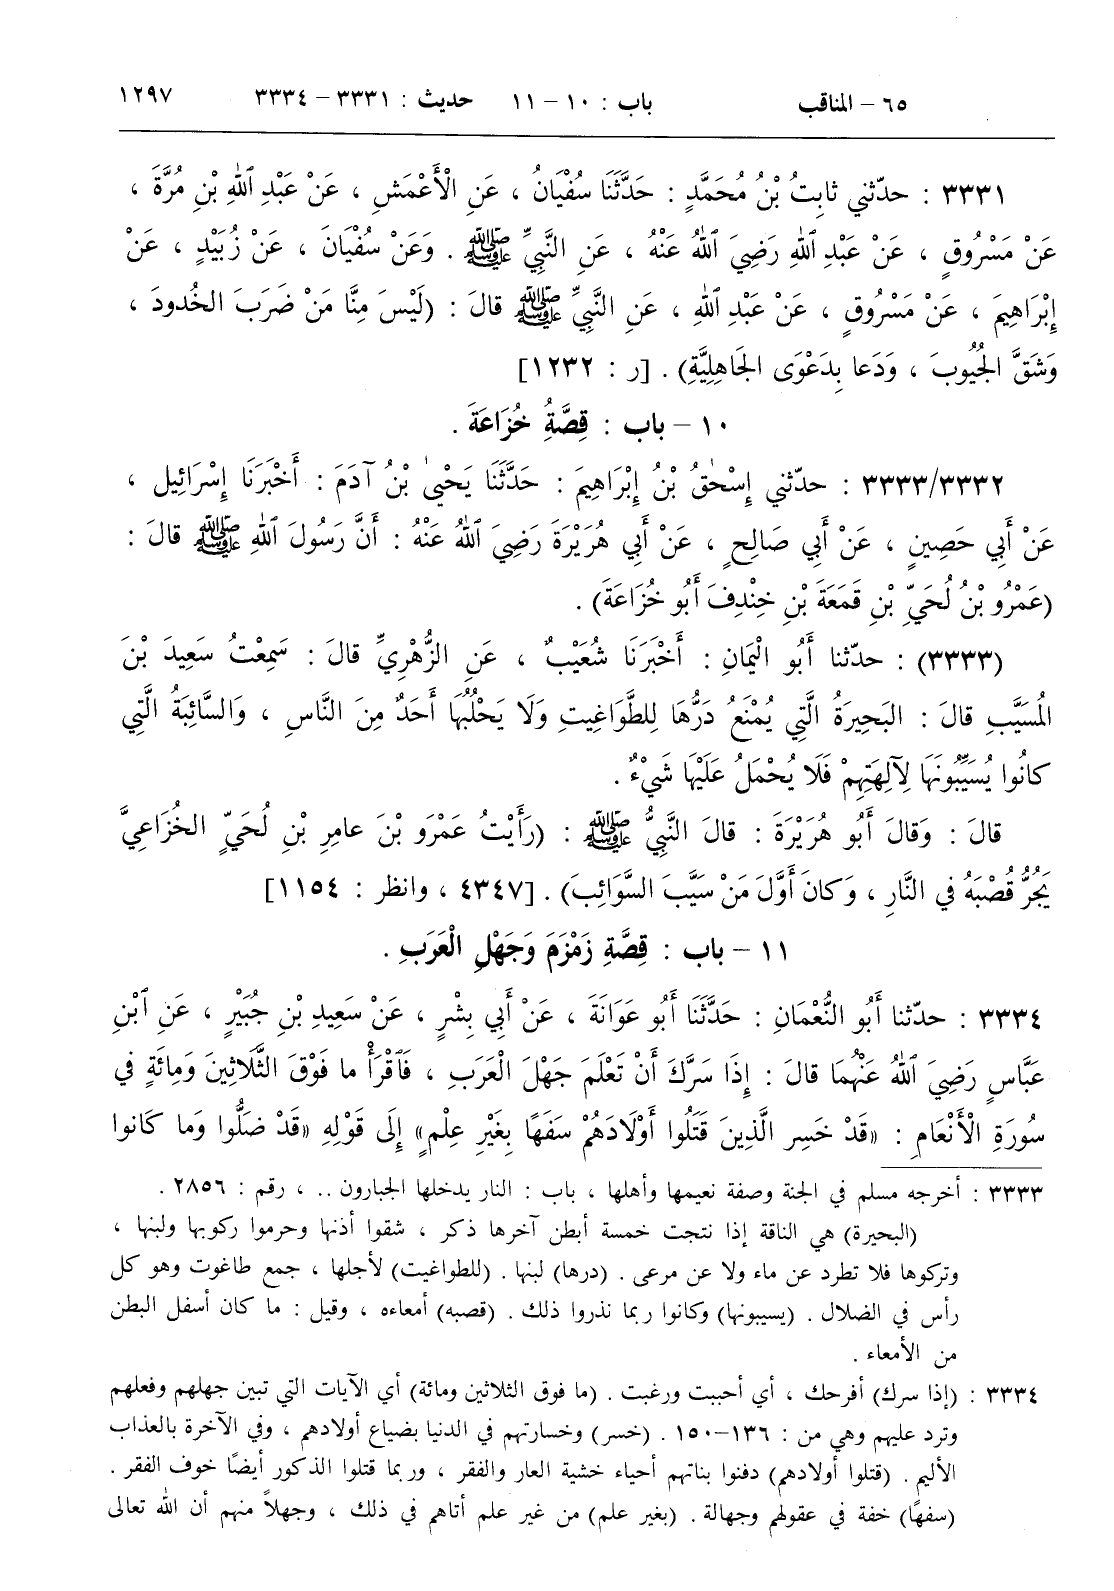 ٦٥ – المناقب باب : ١٠ – ١١ حديث : ٣٣٣١ – ٣٣٣٤ ١٢٩٧
٣٣٣١ : حدّثني ثابِتُ بْنُ مُحَمَّدٍ : حَدَّثَنَا سُفْيَانُ ، عَنِ الْأَعْمَشِ ، عَنْ عَبْدِ ٱللهِ بْنِ مُرَّةَ ،
عَنْ مَسْرُوقٍ ، عَنْ عَبْدِ ٱللهِ رَضِيَ ٱللهُ عَنْهُ ، عَنِ النَّبِيِّ ﷺ . وَعَنْ سُفْيَانَ ، عَنْ زُبَيْدٍ ، عَنْ
إِبْرَاهِيمَ ، عَنْ مَسْرُوقٍ ، عَنْ عَبْدِ ٱللهِ ، عَنِ النَّبِيِّ ﷺ قالَ : (لَيْسَ مِنَّا مَنْ ضَرَبَ الخُدودَ ،
وَشَقَّ الجُيُوبَ ، وَدَعا بِدَعْوَى الجَاهِلِيَّةِ) . [ر : ١٢٣٢]
١٠ – باب : قِصَّةُ خُزَاعَةَ .
٣٣٣٣/٣٣٣٢ : حدّثني إِسْحٰقُ بْنُ إِبْرَاهِيمَ : حَدَّثَنَا يَحْيىٰ بْنُ آدَمَ : أَخْبَرَنَا إِسْرَائِيل ،
عَنْ أَبِي حَصِينٍ ، عَنْ أَبِي صَالِحٍ ، عَنْ أَبِي هُرَيْرَةَ رَضِيَ ٱللهُ عَنْهُ : أَنَّ رَسُولَ ٱللهِ ﷺ قالَ :
(عَمْرُو بْنُ لُحَيِّ بْنِ قَمَعَةَ بْنِ خِنْدِفَ أَبُو خُزَاعَةَ) .
(٣٣٣٣) : حدّثنا أَبُو الْيَمَانِ : أَخْبَرَنَا شُعَيْبٌ ، عَنِ الزُّهْرِيِّ قالَ : سَمِعْتُ سَعِيدَ بْنَ
المُسَيَّبِ قالَ : البَحِيرَةُ الَّتِي يُمْنَعُ دَرُّهَا لِلطَّوَاغِيتِ وَلَا يَحْلُبُهَا أَحَدٌ مِنَ النَّاسِ ، وَالسَّائِبَةُ الَّتِي
كانُوا يُسَيِّبُونَهَا لِآلِهَتِهِمْ فَلَا يُحْمَلُ عَلَيْهَا شَيْءٌ .
قالَ : وَقالَ أَبُو هُرَيْرَةَ : قالَ النَّبِيُّ ﷺ : (رَأَيْتُ عَمْرَو بْنَ عامِرِ بْنِ لُحَيٍّ الخُزَاعِيَّ
يَجُرُّ قُصْبَهُ في النَّارِ ، وَكانَ أَوَّلَ مَنْ سَيَّبَ السَّوَائِبَ) . [٤٣٤٧ ، وانظر : ١١٥٤]
١١ – باب : قِصَّةِ زَمْزَمَ وَجَهْلِ الْعَرَبِ .
٣٣٣٤ : حدّثنا أَبُو النُّعْمَانِ : حَدَّثَنَا أَبُو عَوَانَةَ ، عَنْ أَبِي بِشْرٍ ، عَنْ سَعِيدِ بْنِ جُبَيْرٍ ، عَنِ ٱبْنِ
عَبَّاسٍ رَضِيَ ٱللهُ عَنْهُمَا قالَ : إِذَا سَرَّكَ أَنْ تَعْلَمَ جَهْلَ الْعَرَبِ ، فَٱقْرَأْ ما فَوْقَ الثَّلَاثِينَ وَمِائَةٍ في
سُورَةِ الْأَنْعَامِ : «قَدْ خَسِر الَّذِينَ قَتَلُوا أَوْلَادَهُمْ سَفَهًا بِغَيْرِ عِلْمٍ» إِلَى قَوْلِهِ «قَدْ ضَلُّوا وَما كانُوا
٣٣٣٣ : أخرجه مسلم في الجنة وصفة نعيمها وأهلها ، باب : النار يدخلها الجبارون .. ، رقم : ٢٨٥٦ .
(البحيرة) هي الناقة إذا نتجت خمسة أبطن آخرها ذكر ، شقوا أذنها وحرموا ركوبها ولبنها ،
وتركوها فلا تطرد عن ماء ولا عن مرعى . (درها) لبنها . (للطواغيت) لأجلها ، جمع طاغوت وهو كل
رأس في الضلال . (يسيبونها) وكانوا ربما نذروا ذلك . (قصبه) أمعاءه ، وقيل : ما كان أسفل البطن
من الأمعاء .
٣٣٣٤ : (إذا سرك) أفرحك ، أي أحببت ورغبت . (ما فوق الثلاثين ومائة) أي الآيات التي تبين جهلهم وفعلهم
وترد عليهم وهي من : ١٣٦–١٥٠ . (خسر) وخسارتهم في الدنيا بضياع أولادهم ، وفي الآخرة بالعذاب
الأليم . (قتلوا أولادهم) دفنوا بناتهم أحياء خشية العار والفقر ، وربما قتلوا الذكور أيضًا خوف الفقر .
(سفهًا) خفة في عقولهم وجهالة . (بغير علم) من غير علم أتاهم في ذلك ، وجهلاً منهم أن الله تعالى